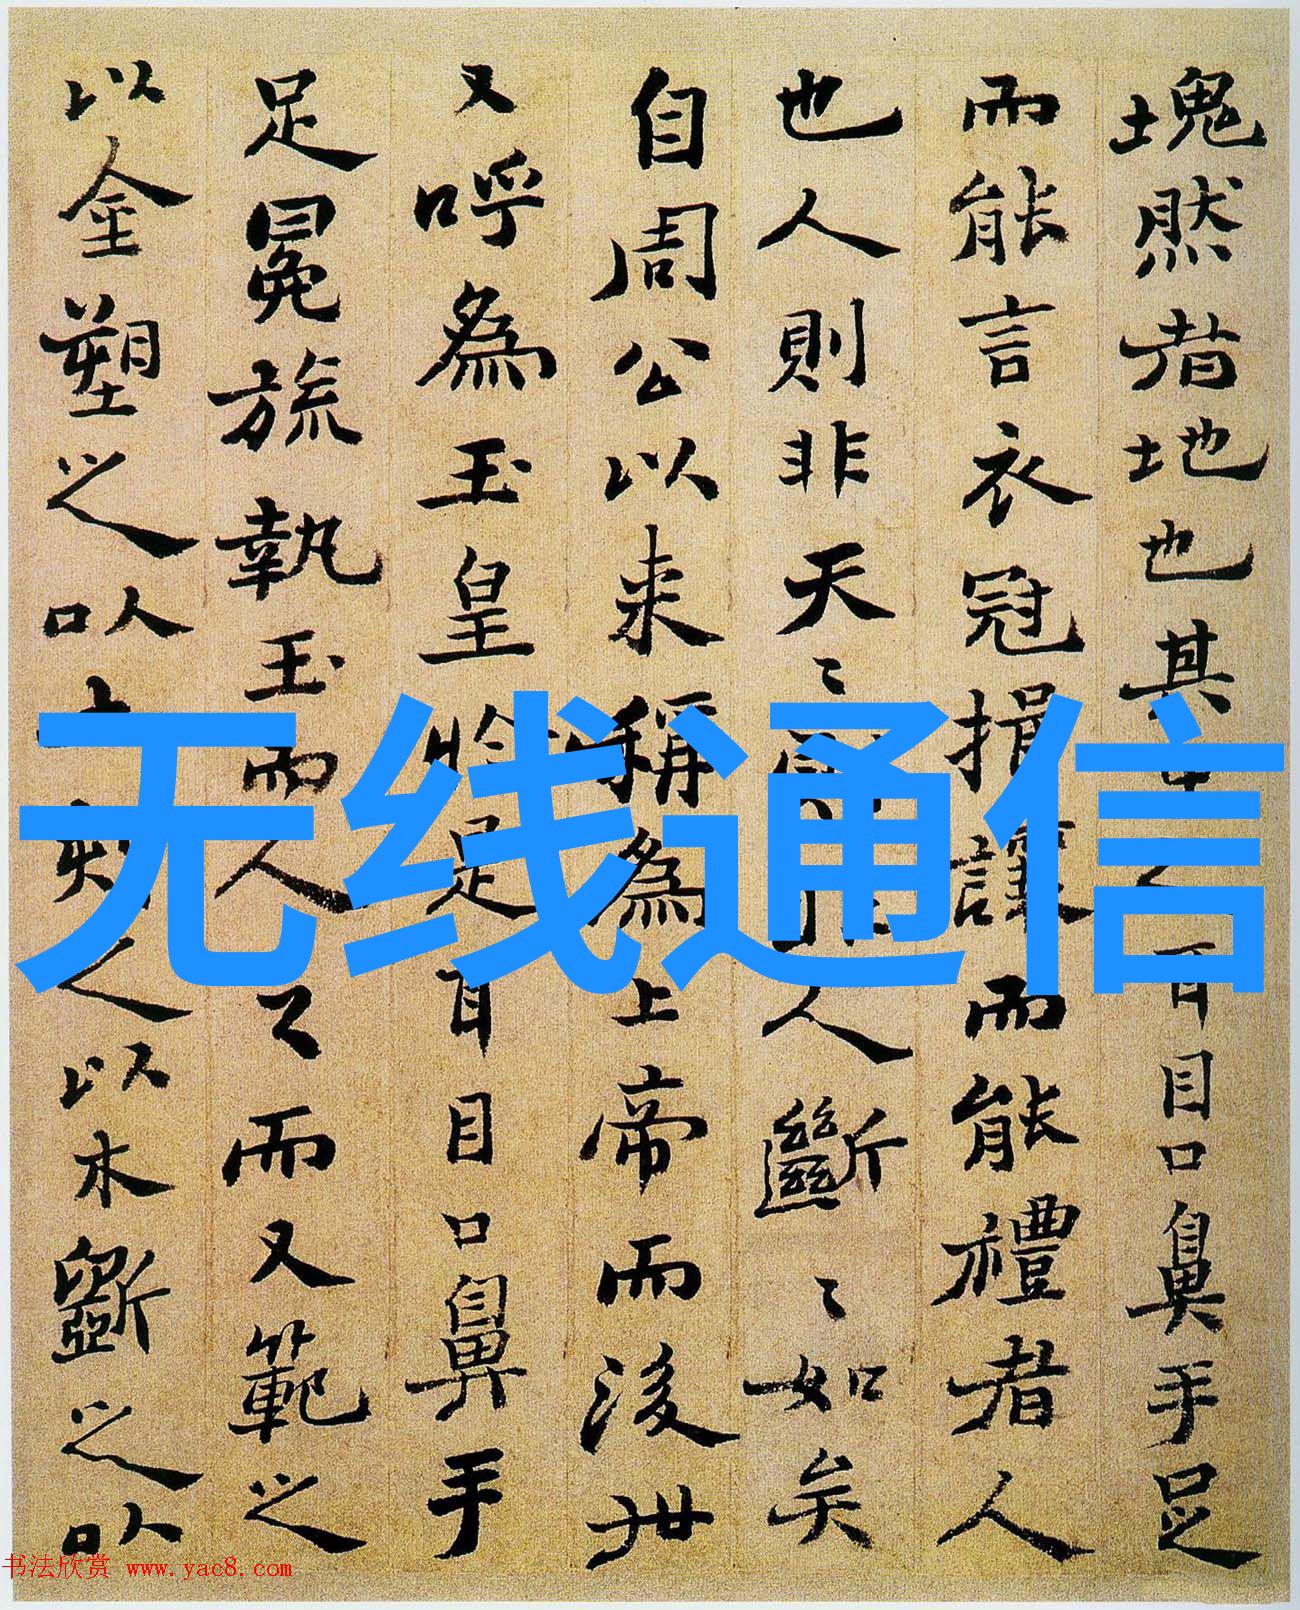 塊然者地也其
耳目口鼻手足
而能言衣冠揖讓而能禮者人
也人則非天〻
人斷〻如矣
自周公以来稱為上帝而後世
又呼為玉皇
是耳目口鼻手
足冕旒執玉而人之而又範之
以金塑之以
之以木斵之以
无线通信
书法欣赏 www.yac8.com